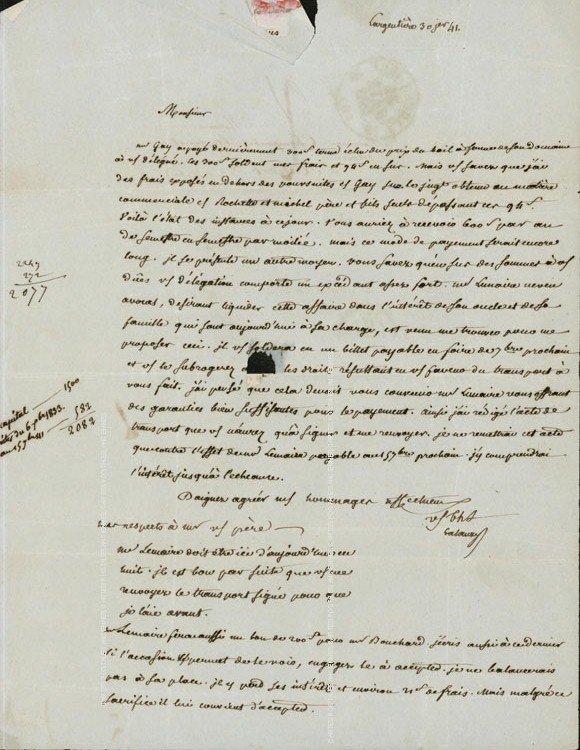 Largentière 30 jer 41.
Monsieur
mr Gay a payé dernièrement 300f terme échu du prix du bail à ferme de son domaine
à vs délégué. les 300f soldent mes frais et 94f en sus. Mais vs savez que j'ai
des frais exposés en dehors des poursuites Gay sur le jugt obtenu en matière
commerciale Rochette et père et fils dépassant ces 94f.
Voilà l'état des instances à ce jour. Vous auriez à recevoir 600f par an
de semestre en semestre par moitié. mais ce mode de payement serait encore
long. il se présente un autre moyen. vous savez que sur des sommes à
dues vs délégation comporte un excédant assez fort. mr Lemaire neveu
avocat, désirant liquider cette affaire dans l'intérêt de son oncle et de sa
famille qui sont aujourd'hui à sa charge, est venu me trouver pour me
proposer ceci. il vs soldera en un billet payable en foire de 7bre prochain
et vs le subrogerez les droits résultant en vs faveur du transport à
vous fait. j'ai pensé que cela devait vous convenir mr Lemaire vous offrant
des garanties bien suffisantes pour le payement. ainsi j'ai rédigé l'acte de
transport que vs n'aurez qu'à signer et me renvoyer. je ne remettrai cet acte
que contre l'effet de mr Lemaire payable au 15 7bre prochain. j'y comprendrai
l'intérêt jusqu'à l'échéance.
Daignez agréer mes hommages
respects à mr vs père
mr Lemaire doit être ici d'aujourd'hui en
huit. il est bon par suite que vs me
renvoyez le transport signé pour que
je l'aie avant.
mr Lemaire fera aussi un bon de 200f pour mr Bouchard j'écris aussi à ce dernier
si l'occasion vs permet de le voir, engagez le à accepter. je ne balancerais
pas à sa place. il y perd ses intérêts et environ de frais. Mais malgré ce
sacrifice il lui convient d'accepter.
2077
capital 1500
582
2082